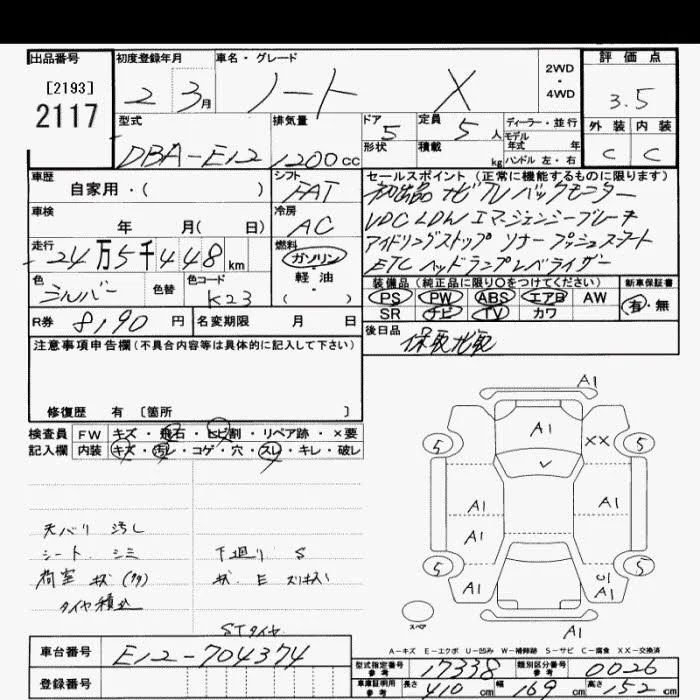 出品番号 初度登録年月 車名・グレード 2WD・4WD 評価点
[2193]
2117
2 3月 ノート X 3.5
型式 排気量 ドア 5 定員 5 人 ディーラー・並行 外装 内装
形状 積載 kg モデル年式 年 ハンドル 左・右
DBA-E12 1200cc C C
車歴 シフト セールスポイント (正常に機能するものに限ります)
自家用・( ) FAT
初出品 ナビ TV バックモニター
車検 冷房 VDC LDW エマージェンシーブレーキ
年 月( 日) AC
アイドリングストップ ソナー プッシュスタート
走行 燃料 ETC ヘッドランプレベライザー
24万5千448km ガソリン
軽・油
( )
色 色替 色コード 装備品 (純正品に限り○をつけてください) 新車保証書
シルバー K23 PS PW ABS エアB AW 有・無
SR ナビ TV カワ
R券 8190円 名変期限 月 日 後日品
保取 記取
注意事項申告欄 (不具合内容等は具体的に記入して下さい)
修復歴 有 [箇所 ]
検査員 FW キズ・飛石・ヒビ割・リペア跡・×要
記入欄 内装 キズ・汚レ・コゲ・穴・スレ・キレ・破レ
天バリ 汚し
シート シミ 下廻り S
荷室 タイヤ積込
STタイヤ
A1
A1 XX
5 5
A1 A1
A1
5 5
A1 A1
スペア
A1
A-キズ E-エクボ U-凹み W-補修跡 S-サビ C-腐食 XX-交換済
車台番号 E12-704374
型式指定番号 参考 17338 類別区分番号 参考 0026
登録番号
車庫証明用 参考 長さ 410 cm 幅 169 cm 高さ 152 cm